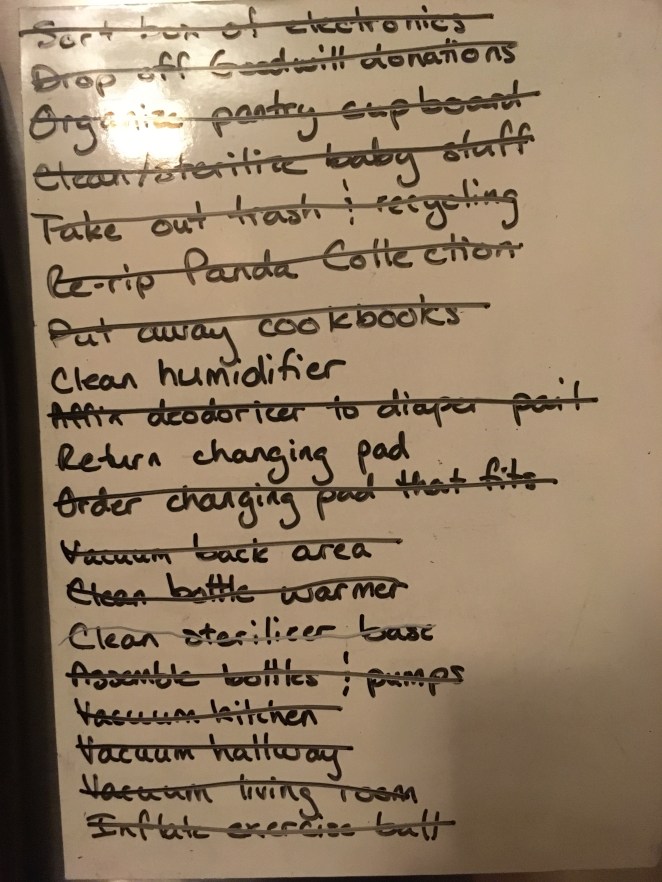 Sort box of electronics
Drop off Goodwill donations
Organize pantry cupboard
Clean/sterilize baby stuff
Take out trash & recycling
Re-rip Panda Collection
Put away cookbooks
Clean humidifier
Affix deodorizer to diaper pail
Return changing pad
Order changing pad that fits
Vacuum back area
Clean bottle warmer
Clean sterilizer base
Assemble bottles & pumps
Vacuum kitchen
Vacuum hallway
Vacuum living room
Inflate exercise ball